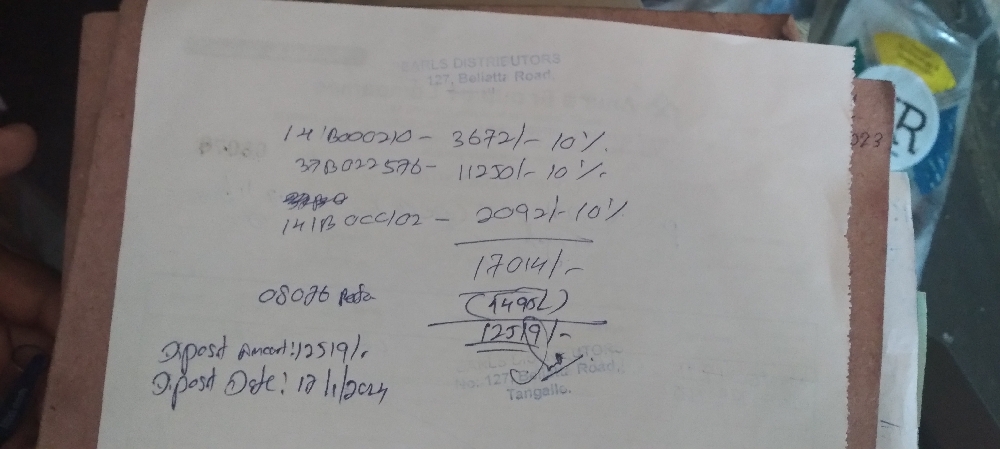 EARLS DISTRIBUTORS
127, Beliatta Road
141B000210 - 3672/- 10%
37B022576 - 11250/- 10%
141B000102 - 2092/- 10%
17014/-
08076 (4495/-)
12519/-
Diposit Amount: 12519/-
Diposit Date: 12/1/2024
No: 127, Road,
Tangalle.
023
R